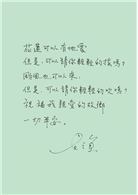 花蓮可以有地震
但是,可以請你輕輕的搖嗎?
颱風也可以來
但是,可以請你輕輕的吹嗎?
祝福我親愛的故鄉
一切平安。